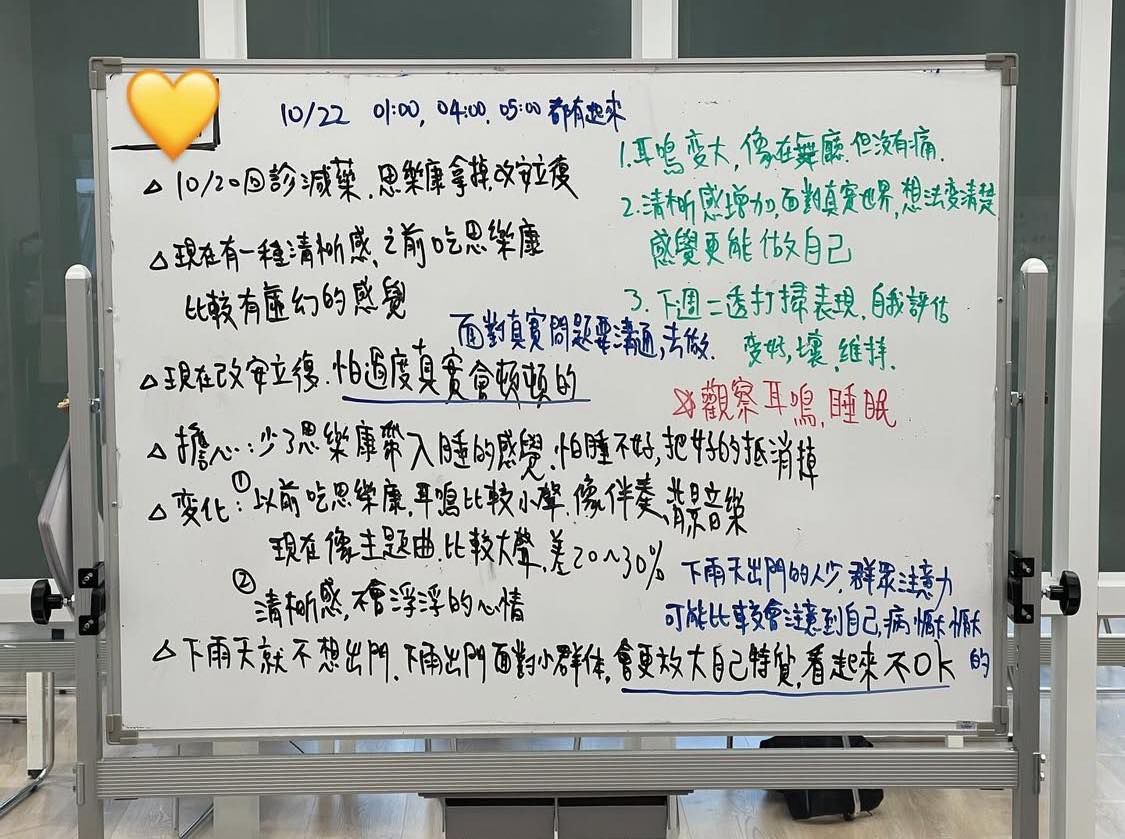 10/22 01:00, 04:00, 05:00 都有起來
△ 10/20回診減藥. 思樂康拿掉,改安立復
△ 現在有一種清晰感, 之前吃思樂康
比較有虛幻的感覺
△ 現在改安立復. 怕過度真實會頓頓的
△ 擔心: 少了思樂康帶入睡的感覺. 怕睡不好, 把好的抵消掉
△ 变化: ① 以前吃思樂康, 耳鳴比較小聲. 像伴奏、背景音樂
現在像主題曲. 比較大聲. 差20~30%
② 清晰感, 不會浮浮的心情
△ 下雨天就不想出門. 下雨出門面對小群体, 會更放大自己特質, 看起來不OK
1. 耳鳴变大, 像在舞廳. 但沒有痛.
2. 清晰感增加, 面對真實世界, 想法变清楚
感覺更能做自己
3. 下週二透打掃表現, 自我評估
变好, 壞, 維持.
觀察耳鳴, 睡眠
面對真實問題要溝通, 去做.
下雨天出門的人少, 群眾注意力
可能比較會注意到自己, 病懨懨
的